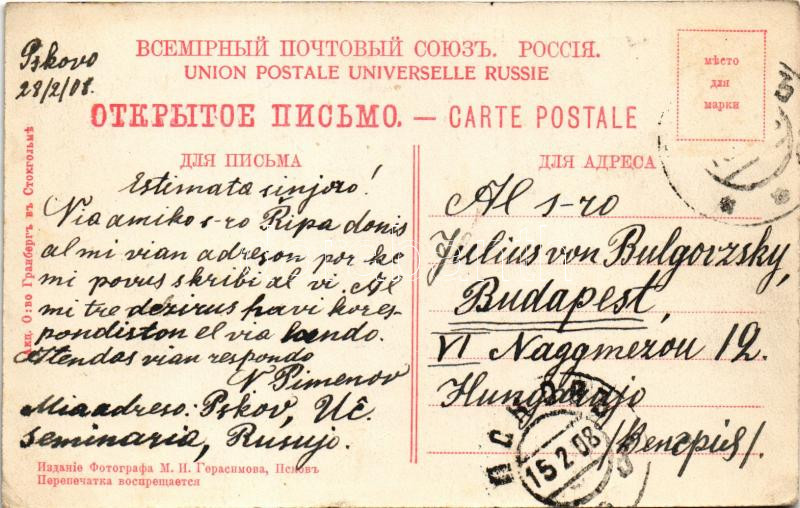 Pskovo
28/2/08.
ВСЕМІРНЫЙ ПОЧТОВЫЙ СОЮЗЪ. РОССІЯ.
UNION POSTALE UNIVERSELLE RUSSIE
ОТКРЫТОЕ ПИСЬМО. — CARTE POSTALE
мѣсто
для
марки
ДЛЯ ПИСЬМА
Estimata sinjoro!
Via amiko s-ro Ripa donis
al mi vian adreson por ke
mi povus skribi al vi. Al
mi tre dezirus havi kores-
pondiston el via lando.
Atendas vian respondo
N Pimenov
Mia adreso: Pskov, Uĉ.
seminaria, Rusujo.
ДЛЯ АДРЕСА
Al s-ro
Julius von Bulgovzsky,
Budapest,
VI Naggmezou 12.
Hungarujo
/Венгрія/.
ПСКОВЪ
15 2 08
Акц. О:во Гранбергъ въ Стокгольмѣ
Изданіе Фотографа М. И. Герасимова, Псковъ
Перепечатка воспрещается